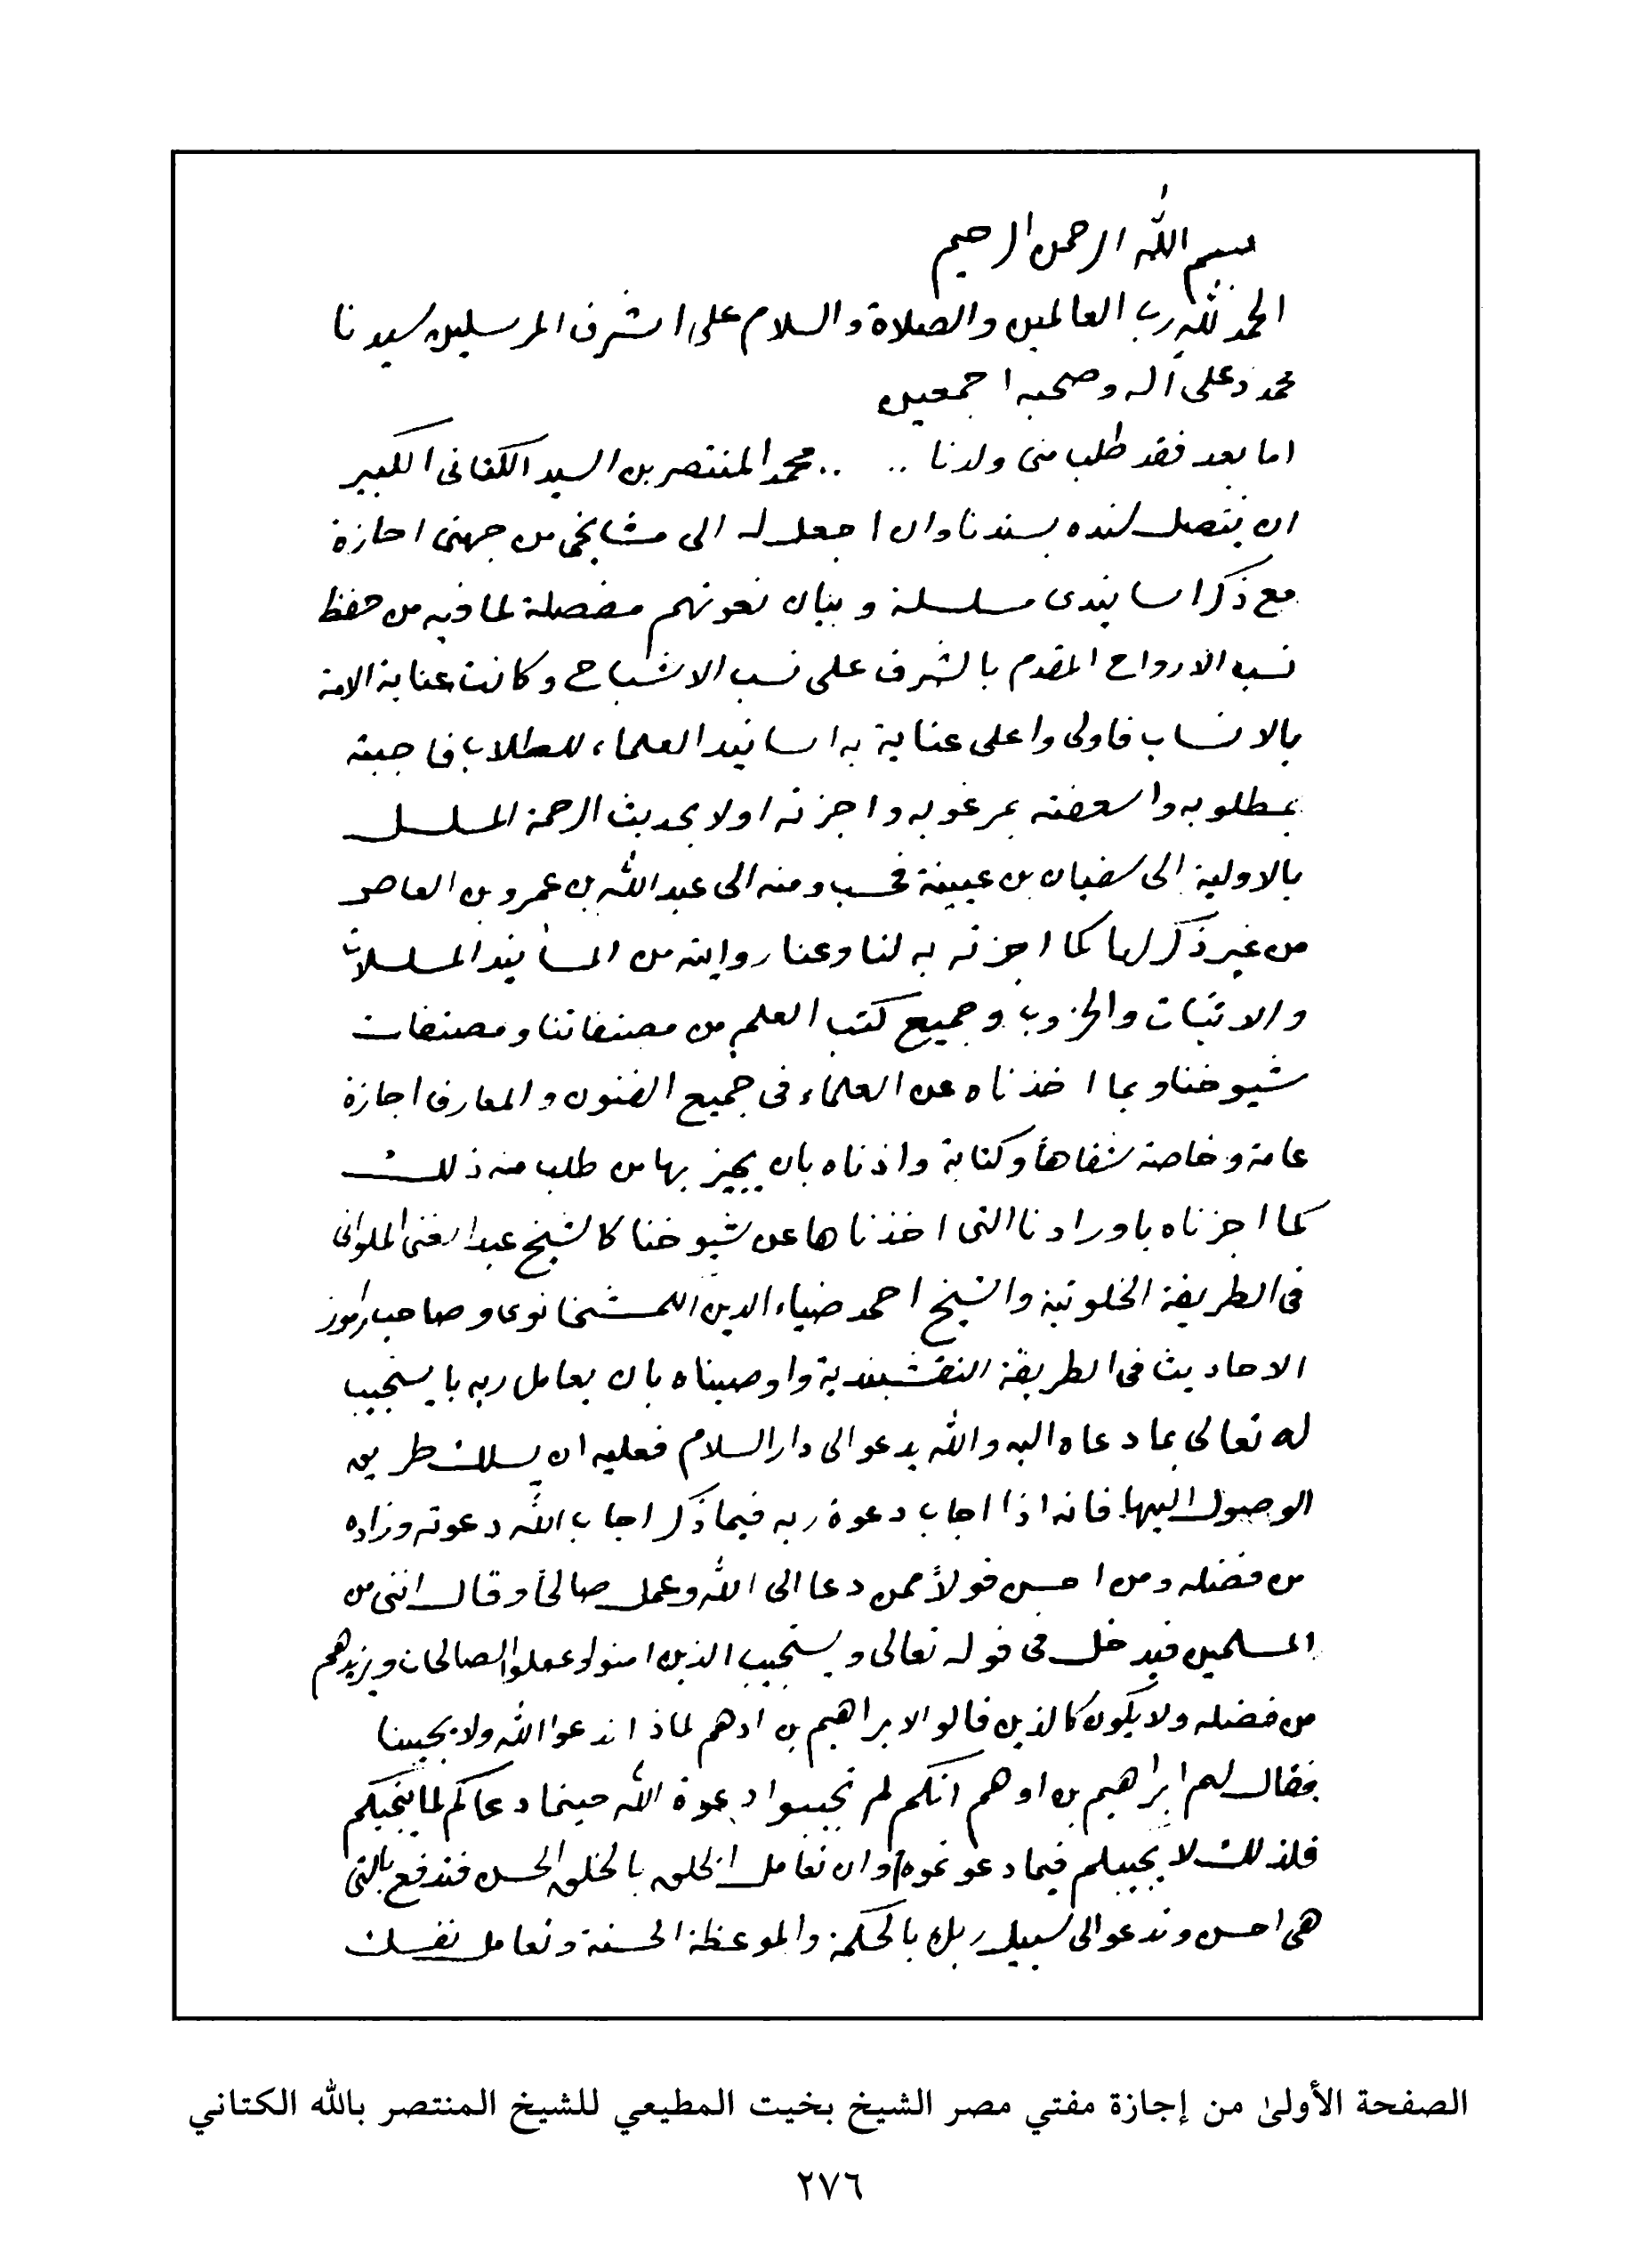 بسم الله الرحمن الرحيم
الحمد لله رب العالمين والصلاة والسلام على اشرف المرسلين سيدنا
محمد وعلى آله وصحبه اجمعين
اما بعد فقد طلب منى ولدنا .. .. محمد المنتصر بن السيد الكتانى الكبير
ان يتصل سنده بسندنا وان اجعل له الى مشايخى من جهتى اجازة
مع ذكر اسانيدى مسلسلة وبيان نعوتهم مفصلة لما فيه من حفظ
نسب الارواح المقدم بالشرف على نسب الاشباح وكانت عناية الامة
بالانساب فاولى واعلى عناية به اسانيد العلماء للطلاب فاجبته
بمطلوبه واسعفته بمرغوبه واجزته اولا بحديث الرحمة المسلسل
بالاولية الى سفيان بن عيينة فحسب ومنه الى عبد الله بن عمرو بن العاص
من غير ذكر لها كما اجزته به لنا وعنا روايته من المسانيد المسلسلات
والاثبات والحزوب وجميع كتب العلم من مصنفاتنا ومصنفات
شيوخنا وبما اخذناه عن العلماء فى جميع الفنون والمعارف اجازة
عامة وخاصة شفاهاً وكتابة واذناه بان يجيز بها من طلب منه ذلك
كما اجزناه باورادنا التى اخذناها عن شيوخنا كالشيخ عبد الغنى الملوانى
فى الطريقة الخلوتية والشيخ احمد ضياء الدين الكمشخانوى وصاحب راموز
الاحاديث فى الطريقة النقشبندية واوصيناه بان يعامل ربه با يستجيب
له تعالى بما دعاه اليه والله يدعو الى دار السلام فعليه ان يسلك طريق
الوصول اليها فانه اذا اجاب دعوة ربه فيما ذكر اجاب الله دعوته وزاده
من فضله ومن احسن قولاً ممن دعا الى الله وعمل صالحاً وقال اننى من
المسلمين فيدخل فى قوله تعالى ويستجيب الذين امنوا وعملوا الصالحات ويزيدهم
من فضله ولا يكون كالذين قالوا لابراهيم بن ادهم لماذا ندعو الله ولا يجيبنا
فقال لهم ابراهيم بن ادهم انكم لم تجيبوا دعوة الله حينما دعاكم لما ينجيكم
فلذلك لا يجيبكم فيما دعوتموه وان تعامل الخلق بالخلق الحسن فتدفع بالتى
هى احسن وتدعو الى سبيل ربك بالحكمة والموعظة الحسنة وتعامل نفسك
الصفحة الأولىٰ من إجازة مفتي مصر الشيخ بخيت المطيعي للشيخ المنتصر بالله الكتاني
٢٧٦